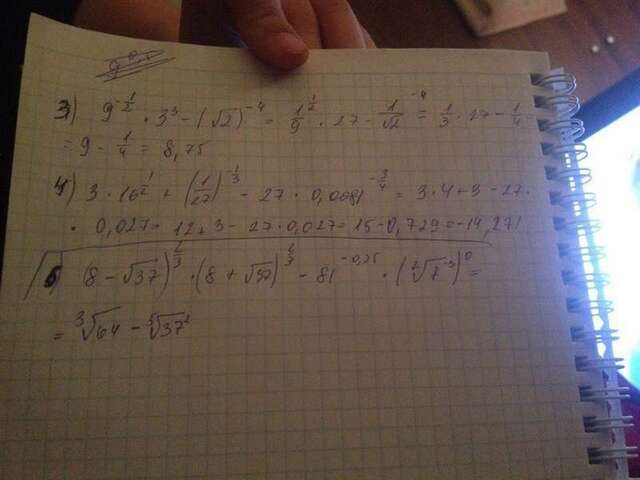 3) 9^{-\frac{1}{2}} · 3^3 - (√2)^{-4} = \frac{1}{9}^{\frac{1}{2}} · 27 - \frac{1}{√2}^{-4} = \frac{1}{3} · 27 - \frac{1}{4} =
= 9 - \frac{1}{4} = 8,75
4) 3 · 16^{\frac{1}{2}} + (\frac{1}{27})^{-\frac{1}{3}} - 27 · 0,0081^{-\frac{3}{4}} = 3 · 4 + 3 - 27 ·
· 0,027 = 12 + 3 - 27 · 0,027 = 15 - 0,729 = -14,271
5 (8 - √37)^{\frac{2}{3}} · (8 + √37)^{\frac{2}{3}} - 81^{-0,25} · (\sqrt[7]{7^{-3}})^0 =
= ∛64 - ∛37^2